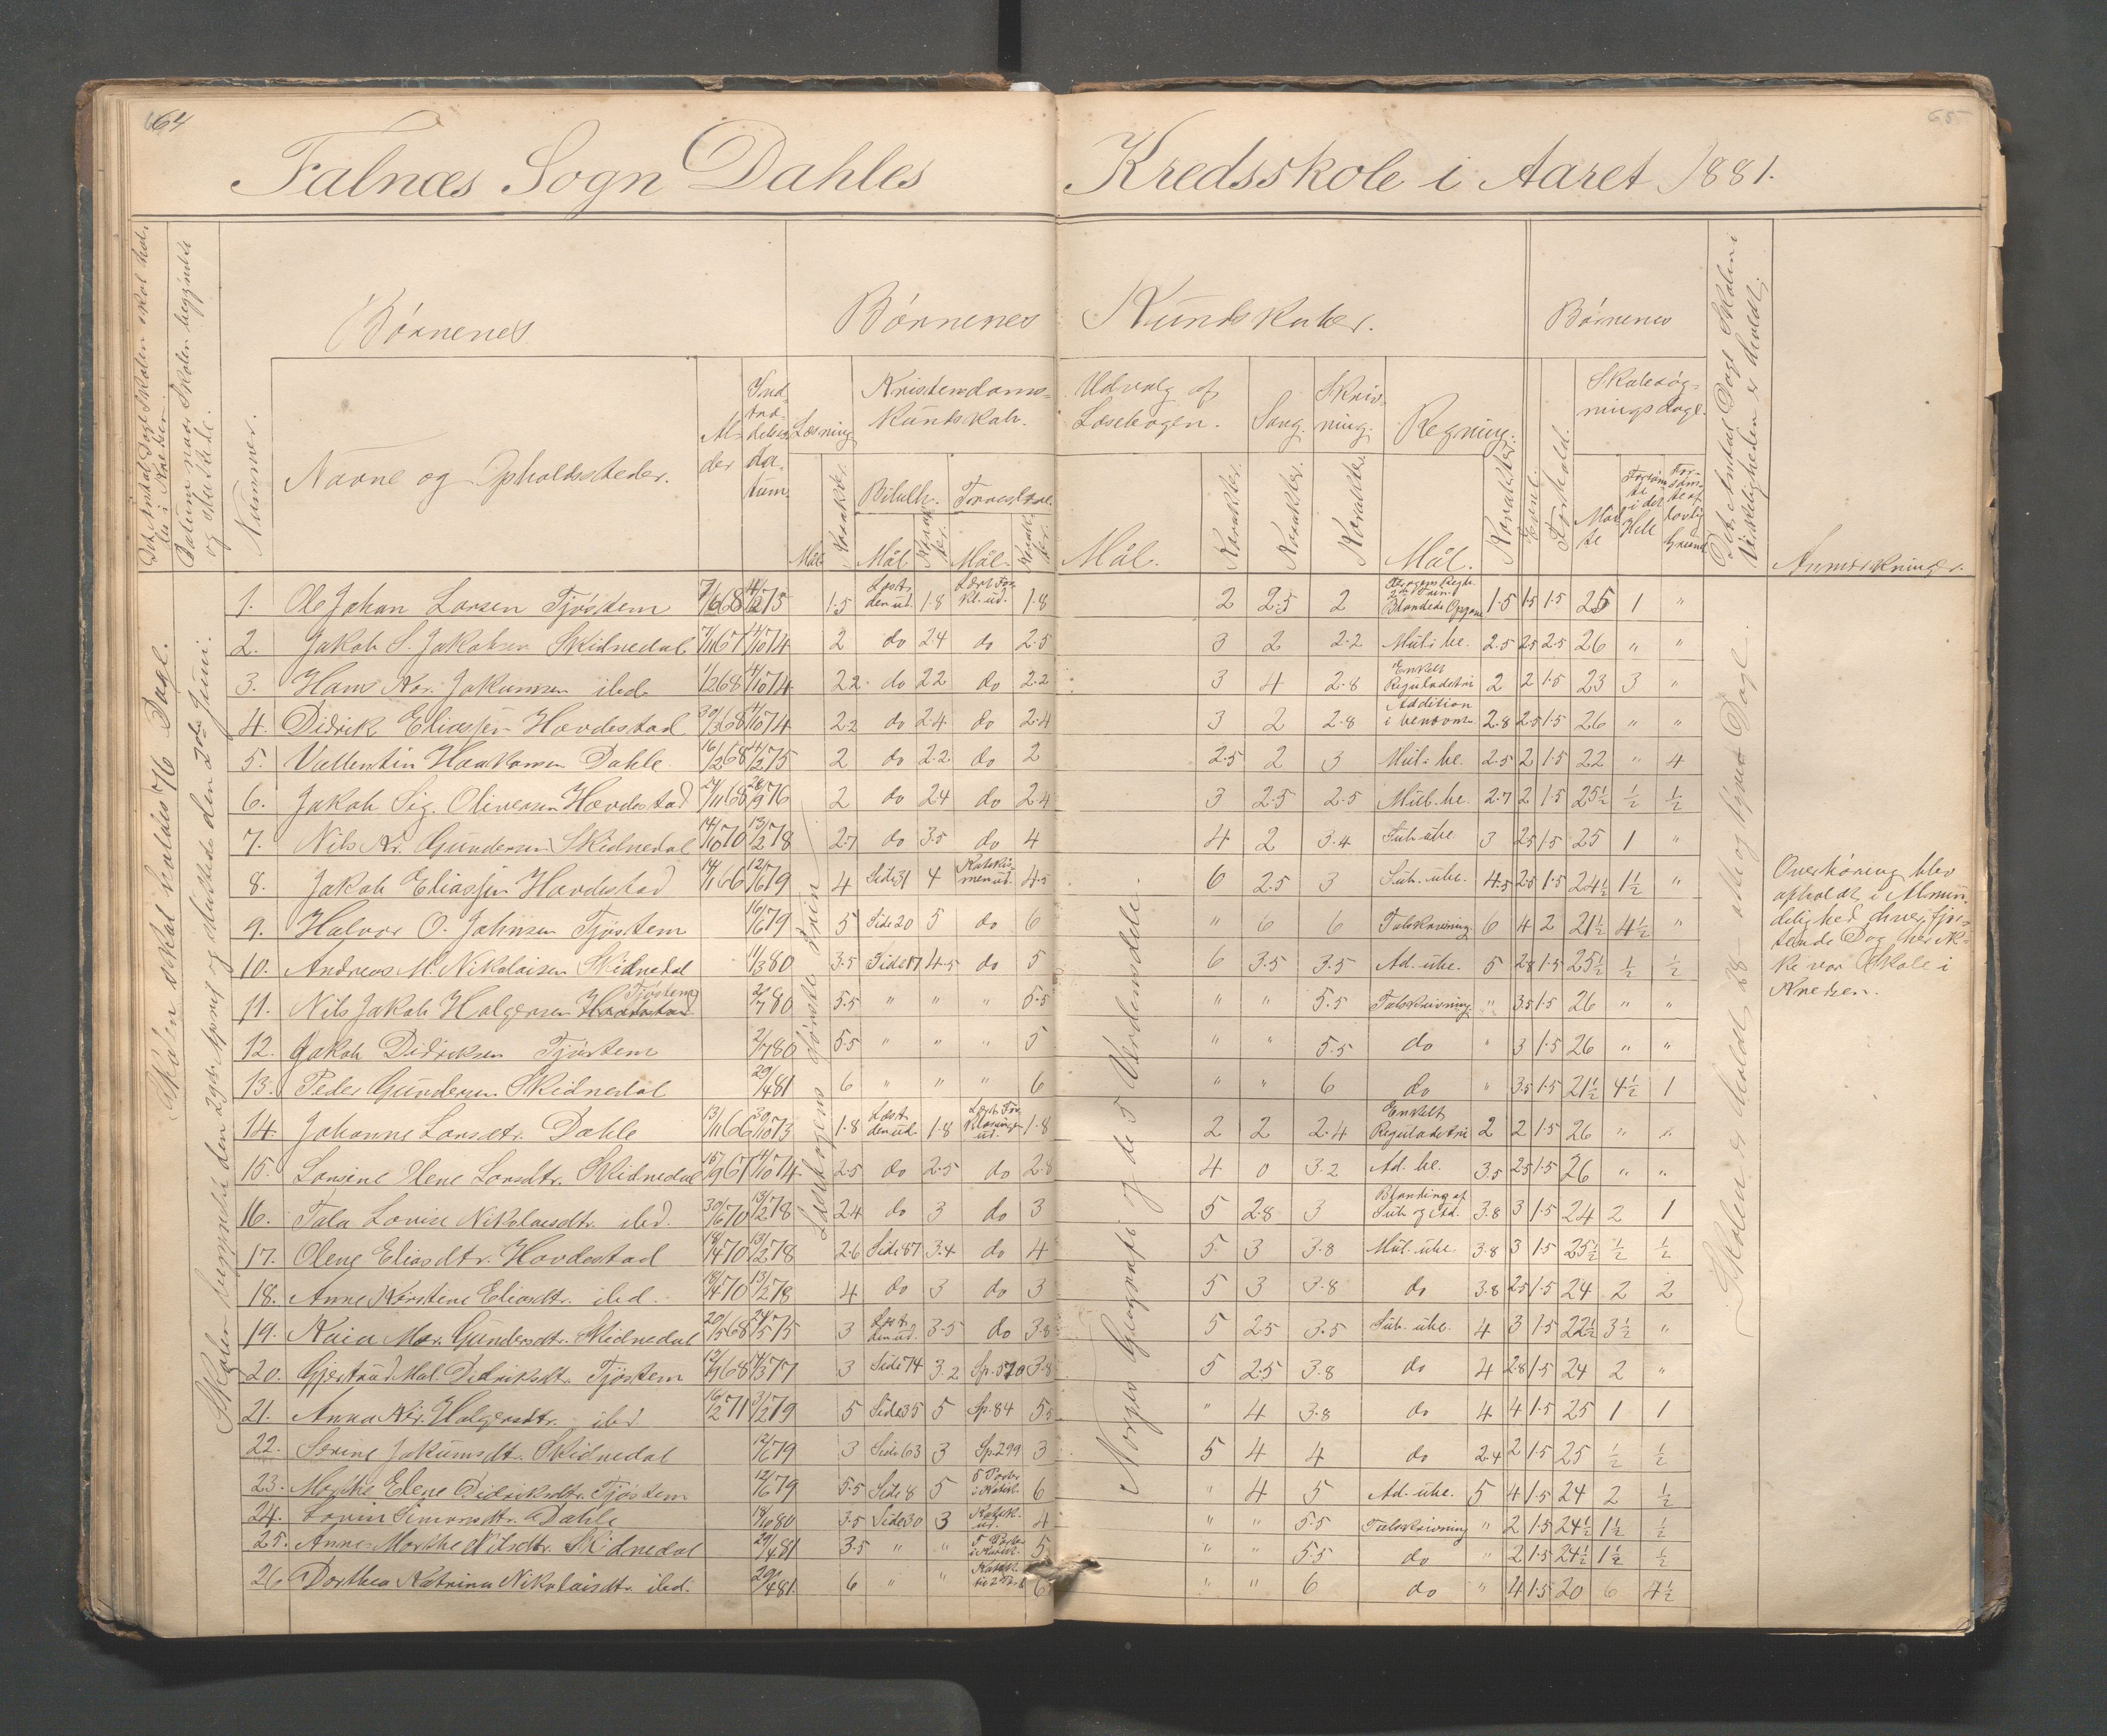 64
65
Falnæs Sogn Dahles Kredsskole i Aaret 1881.
Det Antal Dage Skolen skal holdes i Kredsen.
Datum naar Skolen begyndte og sluttede.
Nummer.
Børnenes
Navne og Opholdssteder.
Alder
Indtrædelsesdatum
Børnenes Kundskaber.
Læsning
Mål
Karakter.
Kristendoms-
Kundskab.
Bibelh.
Mål
Karakter.
Forklar.
Mål
Karakter.
Udvalg af
Læsebogen.
Mål.
Karakter.
Sang.
Karakter.
Skrivning.
Karakter.
Regning.
Mål.
Karakter
Børnenes
Evne.
Forhold.
Skolesøg-
ningsdage.
Mødte
Forsømte i det Hele
Forsømte af lovlig Grund
Det Antal Dage Skolen i Virkeligheden er holdt.
Anmærkninger.
Skolen skal holdes 76 Dage.
Skolen begyndte den 29de April og sluttede den 3die Juni.
Læsebogens første Trin
Norges Geografi og de 5 Verdensdele.
Skolen er holdt 28 otte og tyve Dage.
1. Ole Johan Larsen Tjöstem 7/6 68 4/12 75 1.5 Læst den ud. 1.8 Lært Forkl. ud. 1.8 2 2.5 2 Blandede Opgaver 1.5 1.5 1.5 25 1 "
2. Jakob S. Jakobsen Skidnedal 7/11 67 4/10 74 2 do 2.4 do 2.5 3 2 2.2 Mul. be. 2.5 2.5 2.5 26 " "
3. Hans Kor. Jakumsen ibd. 1/2 68 4/10 74 2.2 do 2.2 do 2.2 3 4 2.8 Enkelt Reguladetri 2 2 1.5 23 3 "
4. Didrik Eliassen Hovdestad 30/3 68 4/10 74 2.2 do 2.4 do 2.4 3 2 2.8 Addition i benævn. 2.8 2.5 1.5 26 " "
5. Vallentin Haakonsen Dahle 16/12 68 4/12 75 2 do 2.2 do 2 2.5 2 3 Mul. be. 2.5 2 1.5 22 " 4
6. Jakob Sig. Oliversen Hovdestad 24/11 68 28/9 76 2 do 2.4 do 2.4 3 2.5 2.5 Mul. be. 2.7 2 1.5 25½ ½ ½
7. Nils Kr. Gundersen Skidnedal 14/10 70 13/2 78 2.7 do 3.5 do 4 4 2 3.4 Sub. ube. 3 2.5 1.5 25 1 "
8. Jakob Eliassen Hovdestad 14/11 66 12/6 79 4 Side 31 4 Katekismen ud. 4.5 6 2.5 3 Sub. ube. 4.5 2.5 1.5 24½ 1½ "
9. Halvor O. Johnsen Tjöstem 16/6 79 5 Side 20 5 do 6 " 6 6 Talskrivning 6 4 2 21½ 4½ "
10. Andreas M. Nikolaisen Skidnedal 11/3 80 3.5 Side 17 4.5 do 5 6 3.5 3.5 Ad. ube. 5 2.8 1.5 25½ ½ ½
11. Nils Jakob Holgersen Tjöstem 2/7 80 5.5 " " " 5.5 " " 5.5 Talskrivning " 3.5 1.5 26 " "
12. Jakob Didriksen Tjöstem 2/7 80 5.5 " " " 5 " " 5.5 do " 3 1.5 26 " "
13. Peder Gundersen Skidnedal 29/4 81 6 " " " 6 " " 6 do " 3.5 1.5 21½ 4½ 1
14. Johanne Larsdtr. Dahle 13/11 66 30/10 73 1.8 Læst den ud. 1.8 Lært Forklaringen ud. 1.8 2 2 2.4 Enkelt Reguladetri 2 2 1.5 26 " "
15. Larsine Elene Larsdtr. Skidnedal 15/9 67 4/10 74 2.5 do 2.5 do 2.8 4 0 3.2 Ad. be. 3.5 2.5 1.5 26 " "
16. Tala Lovise Nikolaisdtr. ibd. 30/6 70 13/2 78 2.4 do 3 do 3 5 2.8 3 Blanding af Sub. og Ad. 3.8 3 1.5 24 2 1
17. Olene Eliasdtr. Hovdestad 18/4 70 13/2 78 2.6 Side 87 3.4 do 4 5 3 3.8 Mul. ube. 3.8 3 1.5 25½ ½ ½
18. Anne Kirstene Eliasdtr. ibd. 18/4 70 13/2 78 4 do 3 do 3 5 3 3.8 do 3.8 2.5 1.5 24 2 2
19. Kaia Mar. Gundersdtr. Skidnedal 20/5 68 24/5 75 3 Læst den ud. 3.5 do 3.8 5 2.5 3.5 Sub. ube. 4 3 1.5 22½ 3½ "
20. Gjertrud Mal. Didriksdtr. Tjöstem 12/9 68 14/3 77 3 Side 74 3.2 Sp. 570 3.8 5 2.5 3.8 do 4 2.8 1.5 24 2 "
21. Anna Kir. Holgersdtr. ibd 16/2 71 3/2 79 5 Side 35 5 Sp. 84 5.5 " 4 3.8 do 4 4 1.5 25 1 1
22. Serine Jakumsdtr. Skidnedal 12/6 79 3 Side 63 3 Sp. 299 3 5 4 4 do 2.4 2 1.5 25 ½ ½
23. Marthe Elene Didriksdtr. Tjöstem 12/6 79 5.5 Side 8 5 5 Parter i Katek. 6 " 4 5 Ad. ube. 5 4 1.5 24 2 ½
24. Lovise Simonsdtr. Dahle 18/6 80 3.5 Side 30 3 Katek. ud. 4 " " 5.5 Talskrivning " 2 1.5 24½ 1½ ½
25. Anne Marthe Nilsdtr. Skidnedal 29/4 81 3.5 " " 5 Parter i Katek. 5 " " 5.5 do " 2 1.5 24½ 1½ ½
26 Dorthea Katrina Nikolaisdtr. ibd. 29/4 81 6 " " Katek. 6 " " 6 do " 4 1.5 20 6 4½
Overhøring blev
opholdt i Almin-
delighed hver fjor-
tende Dag her ik-
ke var Skole i
Kredsen.